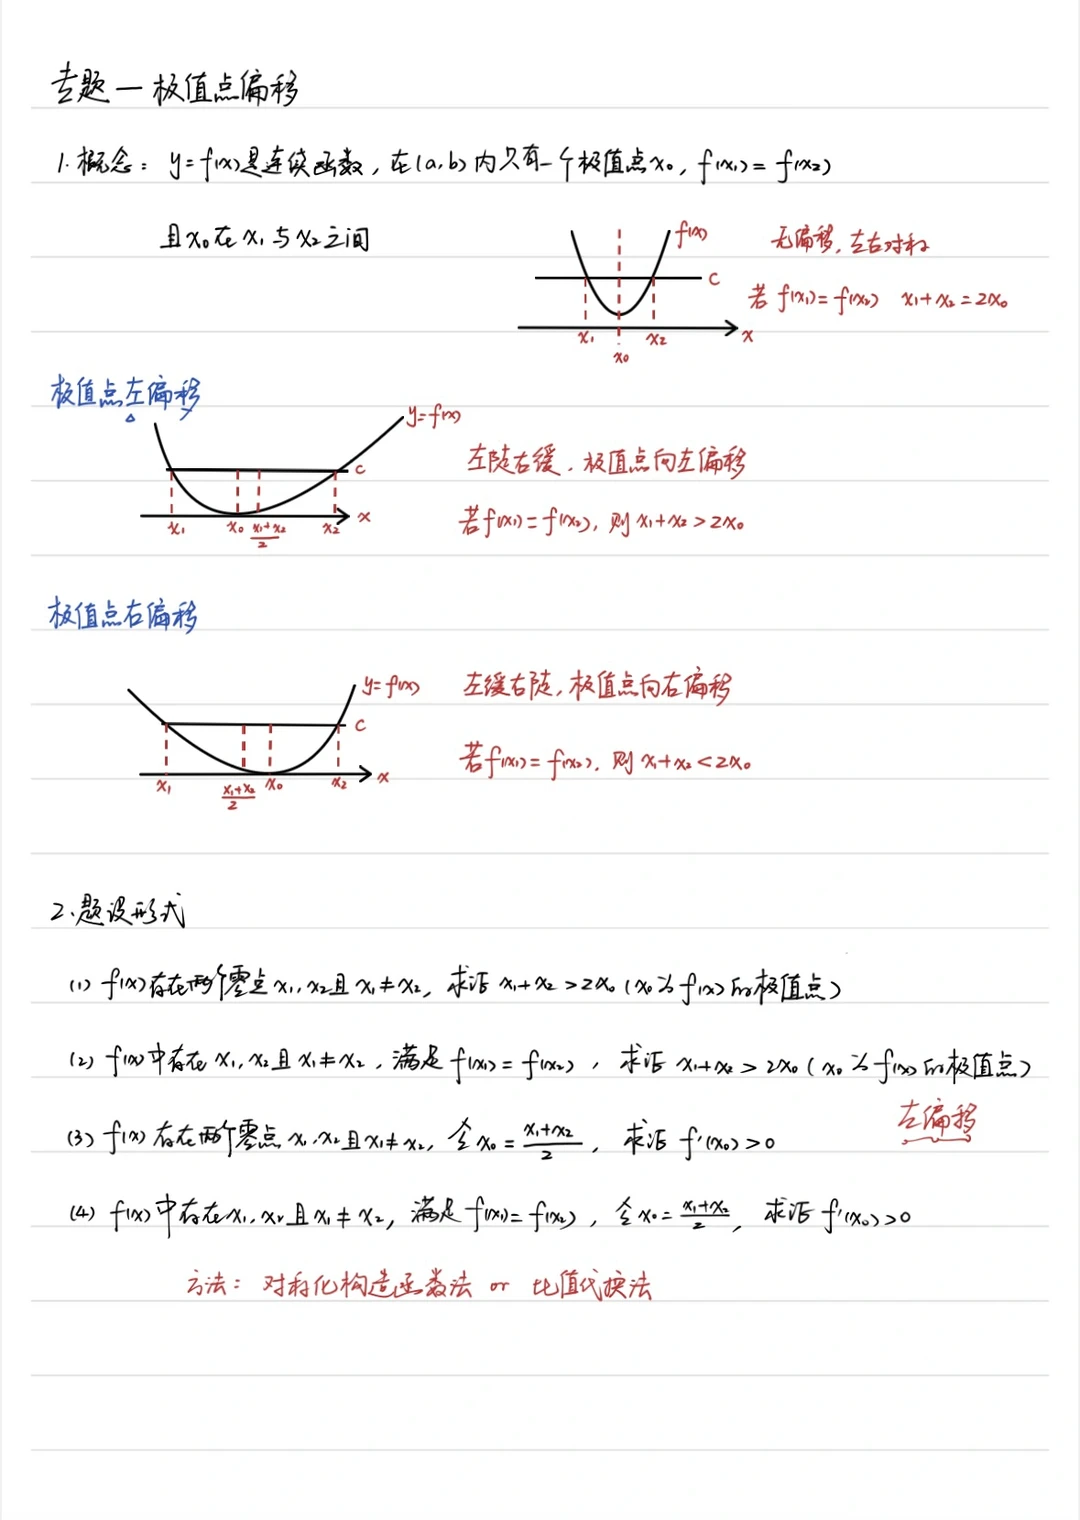 专题一 极值点偏移
1. 概念：y=f(x)是连续函数，在(a,b)内只有一个极值点x₀，f(x₁)=f(x₂)
且x₀在x₁与x₂之间
f(x)
c
x₁ x₀ x₂ x
无偏移，左右对称
若 f(x₁)=f(x₂) x₁+x₂=2x₀
极值点左偏移
y=f(x)
c
x₁ x₀ (x₁+x₂)/2 x₂ x
左陡右缓，极值点向左偏移
若f(x₁)=f(x₂)，则x₁+x₂>2x₀
极值点右偏移
y=f(x)
c
x₁ (x₁+x₂)/2 x₀ x₂ x
左缓右陡，极值点向右偏移
若f(x₁)=f(x₂)，则x₁+x₂<2x₀
2、题设形式
(1) f(x)存在两个零点x₁,x₂且x₁≠x₂，求证x₁+x₂>2x₀(x₀为f(x)的极值点)
(2) f(x)中存在x₁,x₂且x₁≠x₂，满足f(x₁)=f(x₂)，求证x₁+x₂>2x₀(x₀为f(x)的极值点)
左偏移
(3) f(x)存在两个零点x₁,x₂且x₁≠x₂，令x₀=(x₁+x₂)/2，求证f'(x₀)>0
(4) f(x)中存在x₁,x₂且x₁≠x₂，满足f(x₁)=f(x₂)，令x₀=(x₁+x₂)/2，求证f'(x₀)>0
方法：对称化构造函数法 or 比值代换法